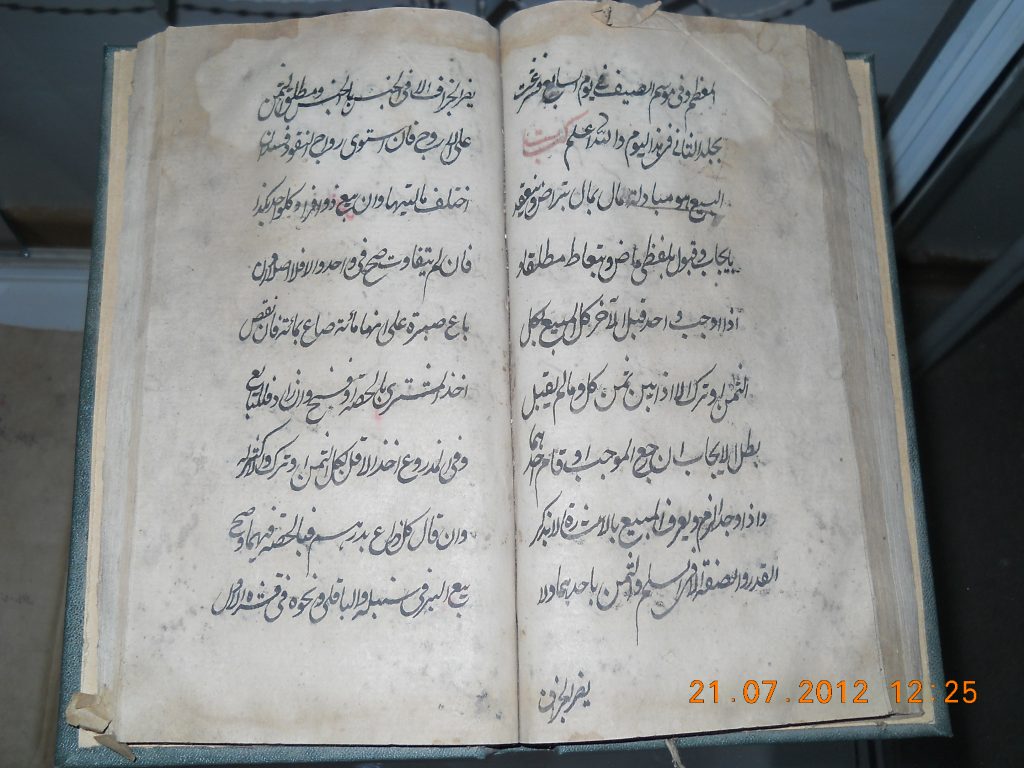 المعظم وفي موسم الصيف في يوم السابع
بجلد الثاني في هذا اليوم والله اعلم كتاب
البيع هو مبادلة مال بمال بتراض وينعقد
بايجاب وقبول بلفظي ماض وبتعاط مطلقا و
اذا اوجب واحد قبل الآخر كل المبيع بكل
الثمن او ترك الا اذا بين ثمن كل وما لم يقبل
بطل الايجاب ان رجع الموجب او قام احدهما
واذا وجدا لزم ويعرف المبيع بالاشارة لا بذكر
القدر والصفة الا في السلم والثمن باحدهما ولا
يضر الجزاف
يضر الجزاف الا في الجنس بالجنس ومطلق الثمن
على الاروج فان استوى رواج النقود فسد ان
اختلف ماليتها وان بيع ذو افراد كل واحد بكذا
فان لم يتفاوت صح في واحد والا فلا اصلا وان
باع صبرة على انها مائة صاع بمائة فان نقص
اخذ المشتري بالحصة او فسخ وان زاد فللبائع
وفي المذروع اخذ الاقل بكل الثمن او ترك والاكثر له
وان قال كل ذراع بدرهم فبالحصة فيهما وصح
بيع البر في سنبله والباقلي ونحوه في قشره الاول
21.07.2012 12:25